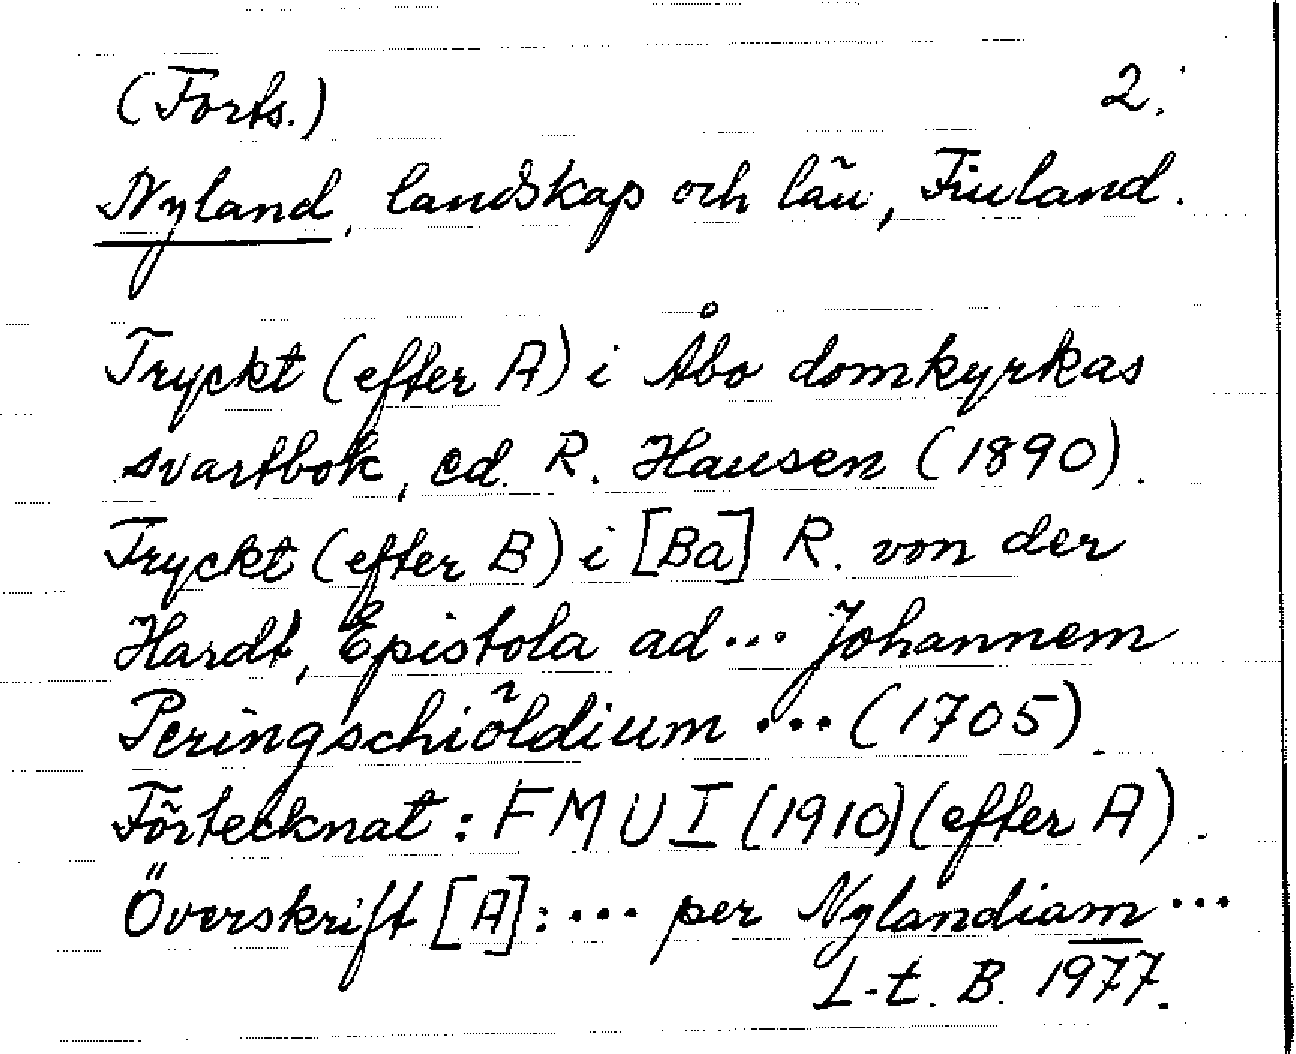 (Forts.) 2.
Nyland, landskap och län, Finland.
Tryckt (efter A) i Åbo domkyrkas
svartbok, ed. R. Hausen (1890).
Tryckt (efter B) i [Ba] R. von der
Hardt, Epistola ad... Johannem
Peringschiöldium ... (1705).
Förtecknat: FMU I (1910) (efter A).
Överskrift [A]: ... per Nylandiam ...
L-t. B. 1977.